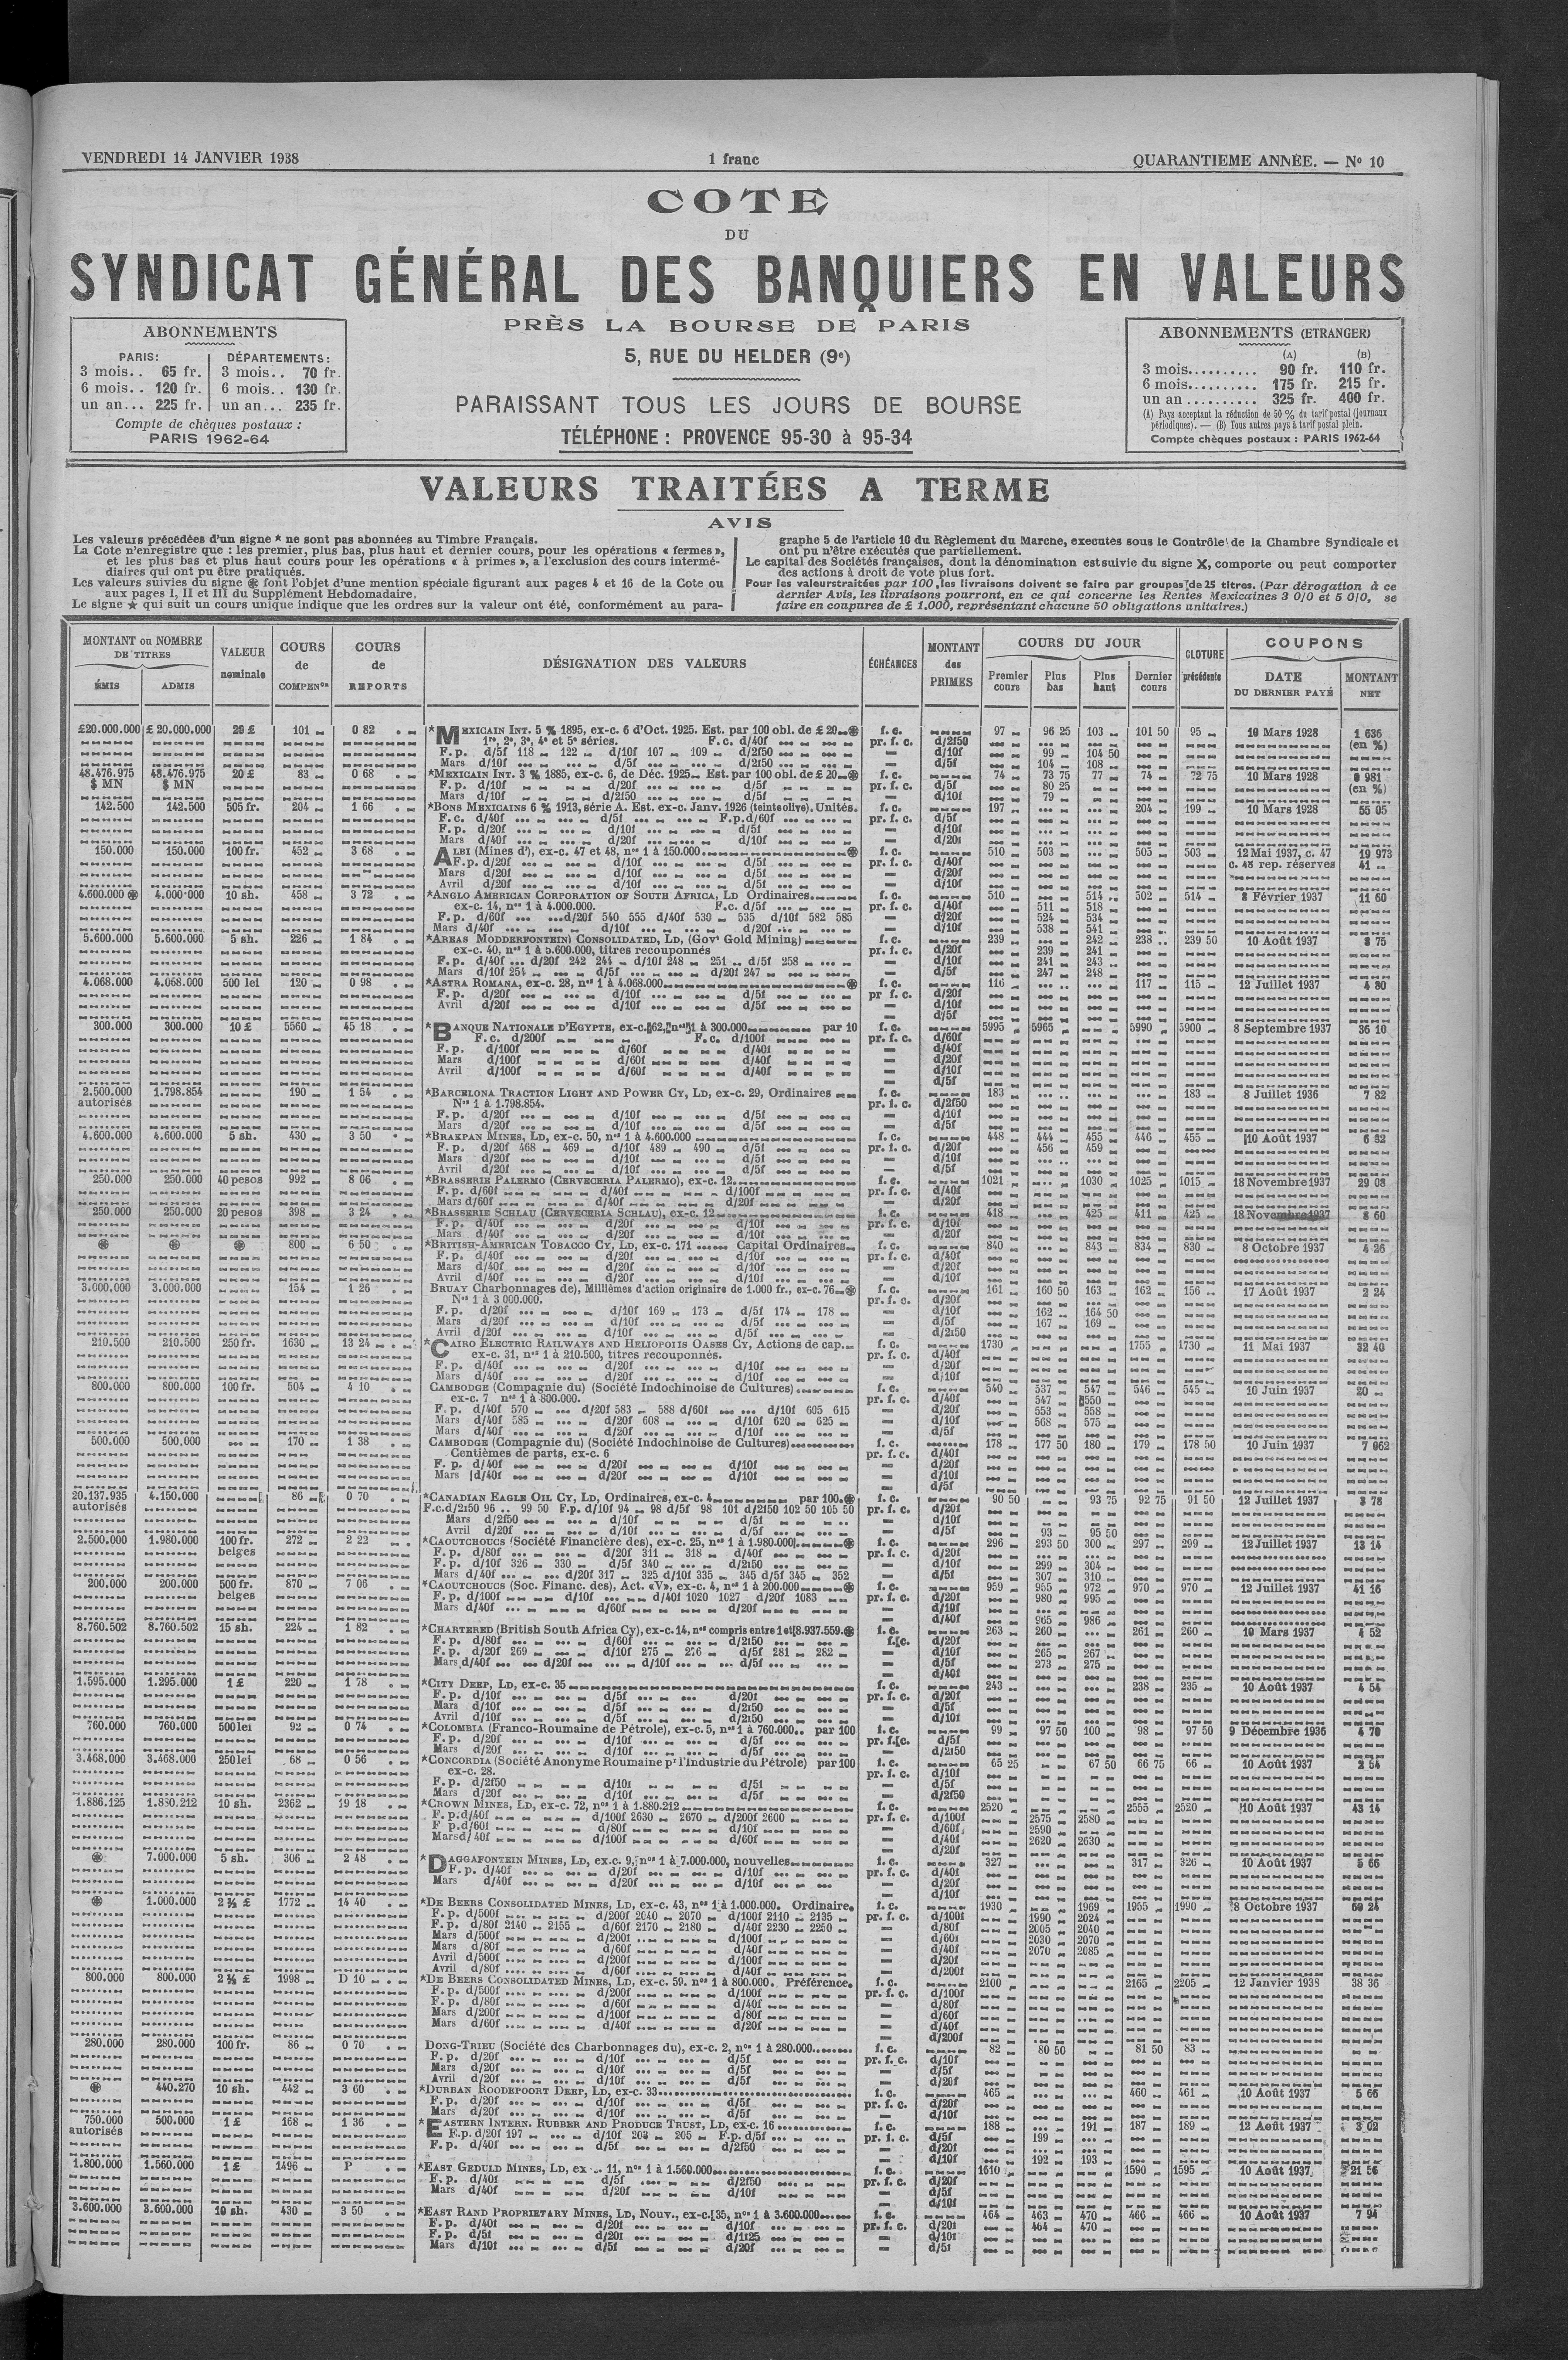 VENDREDI 14 JANVIER 1938
1 franc
QUARANTIEME ANNÉE. — Nº 10
COTE
DU
SYNDICAT GÉNÉRAL DES BANQUIERS EN VALEURS
PRÈS LA BOURSE DE PARIS
5, RUE DU HELDER (9e)
PARAISSANT TOUS LES JOURS DE BOURSE
TÉLÉPHONE : PROVENCE 95-30 à 95-34
ABONNEMENTS
PARIS: DÉPARTEMENTS:
3 mois.. 65 fr. 3 mois.. 70 fr.
6 mois.. 120 fr. 6 mois.. 130 fr.
un an... 225 fr. un an... 235 fr.
Compte de chèques postaux :
PARIS 1962-64
ABONNEMENTS (ETRANGER)
(A) (B)
3 mois.......... 90 fr. 110 fr.
6 mois.......... 175 fr. 215 fr.
un an .......... 325 fr. 400 fr.
(A) Pays acceptant la réduction de 50 % du tarif postal (journaux
périodiques). — (B) Tous autres pays à tarif postal plein.
Compte chèques postaux : PARIS 1962-64
VALEURS TRAITÉES A TERME
AVIS
Les valeurs précédées d'un signe * ne sont pas abonnées au Timbre Français.
La Cote n'enregistre que : les premier, plus bas, plus haut et dernier cours, pour les opérations « fermes »,
et les plus bas et plus haut cours pour les opérations « à primes », a l'exclusion des cours intermé-
diaires qui ont pu être pratiqués.
Les valeurs suivies du signe ⊛ font l'objet d'une mention spéciale figurant aux pages 4 et 16 de la Cote ou
aux pages I, II et III du Supplément Hebdomadaire.
Le signe ★ qui suit un cours unique indique que les ordres sur la valeur ont été, conformément au para-
graphe 5 de l'article 10 du Règlement du Marche, executes sous le Contrôle de la Chambre Syndicale et
ont pu n'être exécutés que partiellement.
Le capital des Sociétés françaises, dont la dénomination est suivie du signe X, comporte ou peut comporter
des actions à droit de vote plus fort.
Pour les valeurs traitées par 100, les livraisons doivent se faire par groupes de 25 titres. (Par dérogation à ce
dernier Avis, les livraisons pourront, en ce qui concerne les Rentes Mexicaines 3 0/0 et 5 0/0, se
faire en coupures de £ 1.000, représentant chacune 50 obligations unitaires.)
MONTANT ou NOMBRE DE TITRES
ÉMIS ADMIS
VALEUR nominale
COURS de COMPENon
COURS de REPORTS
DÉSIGNATION DES VALEURS
ÉCHÉANCES
MONTANT des PRIMES
COURS DU JOUR
Premier cours Plus bas Plus haut Dernier cours
CLOTURE précédente
COUPONS
DATE DU DERNIER PAYÉ
MONTANT NET
£20.000.000 £ 20.000.000 20 £ 101 0 82 *MEXICAIN INT. 5 % 1895, ex-c. 6 d'Oct. 1925. Est. par 100 obl. de £ 20 ⊛ f. c. 97 96 25 103 101 50 95 10 Mars 1928 1 636
1re, 2e, 3e, 4e et 5e séries. F. c. d/40f pr. f. c. d/2f50 (en %)
F. p. d/5f 118 122 d/10f 107 109 d/2f50 d/10f 99 104 50
Mars d/10f d/5f d/2f50 d/5f 104 108
48.476.975 48.476.975 20 £ 83 0 68 *MEXICAIN INT. 3 % 1885, ex-c. 6, de Déc. 1925 Est. par 100 obl. de £ 20 ⊛ f. c. 74 73 75 77 74 72 75 10 Mars 1928 0 981
$ MN $ MN F. p. d/10f d/20f d/5f pr. f. c. d/5f 80 25 (en %)
Mars d/10f d/2f50 d/5f d/10f 79
142.500 142.500 505 fr. 204 1 66 *BONS MEXICAINS 6 % 1913, série A. Est. ex-c. Janv. 1926 (teinte olive). Unités. f. c. 197 204 199 10 Mars 1928 55 05
F. c. d/40f d/5f F.p.d/60f pr. f. c. d/5f
F. p. d/20f d/10f d/5f d/10f
Mars d/40f d/20f d/10f d/20f
150.000 150.000 100 fr. 452 3 68 ALBI (Mines d'), ex-c. 47 et 48, nos 1 à 150.000 ⊛ f. c. 510 503 505 503 12 Mai 1937, c. 47 19 973
F. p. d/20f d/10f d/5f pr. f. c. d/40f c. 48 rep. réserves 41
Mars d/20f d/10f d/5f d/20f
Avril d/20f d/10f d/5f d/10f
4.600.000 ⊛ 4.000.000 10 sh. 458 3 72 *ANGLO AMERICAN CORPORATION OF SOUTH AFRICA, LD Ordinaires f. c. 510 514 502 514 8 Février 1937 11 60
ex-c. 14, nos 1 à 4.000.000. F.c. d/5f pr. f. c. d/40f 511 518
F. p. d/60f d/20f 540 555 d/40f 530 535 d/10f 582 585 d/20f 524 534
Mars d/40f d/10f d/20f d/10f 538 541
5.600.000 5.600.000 5 sh. 226 1 84 *AREAS MODDERFONTEIN CONSOLIDATED, LD, (Govt Gold Mining) f. c. 239 242 238 239 50 10 Août 1937 8 75
ex-c. 40, nos 1 à 5.600.000, titres recouponnés pr. f. c. d/20f 239 241
F. p. d/40f d/20f 242 244 d/10f 248 251 d/5f 258 d/10f 241 243
Mars d/10f 254 d/5f d/20f 247 d/5f 247 248
4.068.000 4.068.000 500 lei 120 0 98 *ASTRA ROMANA, ex-c. 28, nos 1 à 4.068.000 ⊛ f. c. 116 117 115 12 Juillet 1937 4 80
F. p. d/20f d/10f d/5f pr f. c. d/20f
Avril d/20f d/10f d/5f d/10f
d/5f
300.000 300.000 10 £ 5560 45 18 *BANQUE NATIONALE D'EGYPTE, ex-c. 62, nos 1 à 300.000 par 10 f. c. 5995 5965 5990 5900 8 Septembre 1937 36 10
F. c. d/200f F. c. d/100f pr. f. c. d/60f
F. p. d/100f d/60f d/40f d/40f
Mars d/100f d/60f d/40f d/20f
Avril d/100f d/60f d/40f d/10f
d/5f
2.500.000 1.798.854 190 1 54 *BARCELONA TRACTION LIGHT AND POWER CY, LD, ex-c. 29, Ordinaires f. c. 183 183 8 Juillet 1936 7 82
autorisés Nos 1 à 1.798.854. pr. f. c. d/2f50
F. p. d/20f d/10f d/5f d/10f
Mars d/20f d/10f d/5f d/5f
4.600.000 4.600.000 5 sh. 430 3 50 *BRAKPAN MINES, LD, ex-c. 50, nos 1 à 4.600.000 f. c. 448 444 455 446 455 10 Août 1937 6 82
F. p. d/20f 468 469 d/10f 489 490 d/5f pr. f. c. d/20f 456 459
Mars d/20f d/10f d/5f d/10f
Avril d/20f d/10f d/5f d/5f
250.000 250.000 40 pesos 992 8 06 *BRASSERIE PALERMO (CERVECERIA PALERMO), ex-c. 12 f. c. 1021 1030 1025 1015 18 Novembre 1937 29 08
F. p. d/60f d/40f d/100f pr. f. c. d/40f
Mars d/60f d/40f d/20f d/20f
250.000 250.000 20 pesos 398 3 24 *BRASSERIE SCHLAU (CERVECERIA SCHLAU), ex-c. 12 f. c. 418 425 411 425 18 Novembre 1937 8 60
F. p. d/40f d/20f d/10f pr. f. c. d/10f
Mars d/40f d/20f d/10f d/20f
⊛ ⊛ ⊛ 800 6 50 *BRITISH-AMERICAN TOBACCO CY, LD, ex-c. 171 Capital Ordinaires f. c. 840 843 834 830 8 Octobre 1937 4 26
F. p. d/40f d/20f d/10f pr. f. c. d/40f
Mars d/40f d/20f d/10f d/20f
Avril d/40f d/20f d/10f d/10f
3.000.000 3.000.000 154 1 26 BRUAY Charbonnages de), Millièmes d'action originaire de 1.000 fr., ex-c. 76 ⊛ f. c. 161 160 50 163 162 156 17 Août 1937 2 24
Nos 1 à 3 000.000. pr. f. c. d/20f
F. p. d/20f d/10f 169 173 d/5f 174 178 d/10f 162 164 50
Mars d/20f d/10f d/5f d/5f 167 169
Avril d/20f d/10f d/5f d/2f50
210.500 210.500 250 fr. 1630 13 24 *CAIRO ELECTRIC RAILWAYS AND HELIOPOLIS OASES CY, Actions de cap. f. c. 1730 1755 1730 11 Mai 1937 32 40
ex-c. 31, nos 1 à 210.500, titres recouponnés. pr. f. c. d/40f
F. p. d/40f d/20f d/10f d/20f
Mars d/40f d/20f d/10f d/10f
800.000 800.000 100 fr. 504 4 10 CAMBODGE (Compagnie du) (Société Indochinoise de Cultures) f. c. 540 537 547 546 545 10 Juin 1937 20
ex-c. 7 nos 1 à 800.000. pr. f. c. d/40f 547 550
F. p. d/40f 570 d/20f 583 588 d/60f d/10f 605 615 d/20f 553 558
Mars d/40f 585 d/20f 608 d/10f 620 625 d/10f 568 575
d/5f
500.000 500.000 170 1 38 CAMBODGE (Compagnie du) (Société Indochinoise de Cultures) f. c. 178 177 50 180 179 178 50 10 Juin 1937 7 062
Centièmes de parts, ex-c. 6 pr. f. c. d/40f
F. p. d/40f d/20f d/10f d/20f
Mars d/40f d/20f d/10f d/10f
d/5f
20.137.935 4.150.000 86 0 70 *CANADIAN EAGLE OIL CY, LD, Ordinaires, ex-c. 4 par 100 ⊛ f. c. 90 50 93 75 92 75 91 50 12 Juillet 1937 3 78
autorisés F.c.d/2f50 96 99 50 F.p. d/10f 94 98 d/5f 98 101 d/2f50 102 50 105 50 pr. f. c. d/20f
Mars d/2f50 d/10f d/5f d/10f
Avril d/20f d/10f d/5f d/5f 93 95 50
2.500.000 1.980.000 100 fr. 272 2 22 *CAOUTCHOUCS (Société Financière des), ex-c. 25, nos 1 à 1.980.000 ⊛ f. c. 296 293 50 300 297 299 12 Juillet 1937 13 14
belges F. p. d/80f d/20f 311 318 d/40f pr. f. c. d/20f
F. p. d/10f 326 330 d/5f 340 d/2f50 d/10f 299 304
Mars d/40f d/20f 317 325 d/10f 335 345 d/5f 345 352 d/5f 307 310
200.000 200.000 500 fr. 870 7 06 *CAOUTCHOUCS (Soc. Financ. des), Act. «V», ex-c. 4, nos 1 à 200.000 ⊛ f. c. 959 955 972 970 970 12 Juillet 1937 41 16
belges F. p. d/100f d/10f d/40f 1020 1027 d/20f 1083 pr. f. c. d/20f 980 995
Mars d/40f d/60f d/20f d/10f
d/40f 965 986
8.760.502 8.760.502 15 sh. 224 1 82 *CHARTERED (British South Africa Cy), ex-c. 14, nos compris entre 1 et 8.937.559. ⊛ f. c. 263 260 261 260 10 Mars 1937 4 52
F. p. d/80f d/60f d/2f50 f. c. d/20f
F. p. d/20f 269 d/10f 275 276 d/5f 281 282 d/10f 265 267
Mars d/40f d/20f d/10f d/5f d/5f 273 275
d/40f
1.595.000 1.295.000 1 £ 220 1 78 *CITY DEEP, LD, ex-c. 35 f. c. 243 238 235 10 Août 1937 4 54
F. p. d/10f d/5f d/20f pr. f. c. d/20f
Mars d/10f d/5f d/2f50 d/5f
Avril d/10f d/5f d/2f50 d/10f
760.000 760.000 500 lei 92 0 74 *COLOMBIA (Franco-Roumaine de Pétrole), ex-c. 5, nos 1 à 760.000 par 100 f. c. 99 97 50 100 98 97 50 9 Décembre 1936 4 70
F. p. d/20f d/10f d/5f pr. f. c. d/5f
Mars d/20f d/10f d/5f d/2f50
3.468.000 3.468.000 250 lei 68 0 56 *CONCORDIA (Société Anonyme Roumaine pr l'Industrie du Pétrole) par 100 f. c. 65 25 67 50 66 75 66 10 Août 1937 2 54
ex-c. 28. pr. f. c. d/10f
F. p. d/2f50 d/10f d/5f d/5f
Mars d/20f d/10f d/5f d/2f50
1.886.125 1.880.212 10 sh. 2362 19 18 *CROWN MINES, LD, ex-c. 72, nos 1 à 1.880.212 f. c. 2520 2555 2520 10 Août 1937 43 14
F. p. d/40f d/100f 2630 2670 d/200f 2600 pr. f. c. d/100f 2575 2580
F p. d/60f d/80f d/10f d/60f 2590
Mars d/40f d/100f d/60f d/40f 2620 2630
d/20f
⊛ 7.000.000 5 sh. 306 2 48 *DAGGAFONTEIN MINES, LD, ex.c. 9, nos 1 à 7.000.000, nouvelles f. c. 327 317 326 10 Août 1937 5 66
F. p. d/40f d/20f d/10f pr. f. c. d/40f
Mars d/40f d/20f d/10f d/20f
d/10f
⊛ 1.000.000 2 ½ £ 1772 14 40 *DE BEERS CONSOLIDATED MINES, LD, ex-c. 43, nos 1 à 1.000.000. Ordinaire. f. c. 1930 1969 1955 1990 8 Octobre 1937 60 24
F. p. d/500f d/200f 2040 2070 d/100f 2110 2135 pr. f. c. d/100f 1990 2024
F. p. d/80f 2140 2155 d/60f 2170 2180 d/40f 2230 2250 d/80f 2005 2040
Mars d/500f d/200f d/100f d/60f 2030 2070
Mars d/80f d/60f d/40f d/40f 2070 2085
Avril d/500f d/200f d/100f d/20f
Avril d/80f d/60f d/40f d/200f
800.000 800.000 2 ½ £ 1998 D 10 *DE BEERS CONSOLIDATED MINES, LD, ex-c. 59. nos 1 à 800.000. Préférence. f. c. 2100 2165 2205 12 Janvier 1938 38 36
F. p. d/500f d/200f d/100f pr. f. c. d/100f
F. p. d/80f d/60f d/40f d/80f
Mars d/200f d/100f d/80f d/60f
Mars d/60f d/40f d/20f d/40f
d/200f
280.000 280.000 100 fr. 86 0 70 DONG-TRIEU (Société des Charbonnages du), ex-c. 2, nos 1 à 280.000 f. c. 82 80 50 81 50 83
F. p. d/20f d/10f d/5f pr. f. c. d/10f
Mars d/20f d/10f d/5f d/5f
Avril d/20f d/10f d/5f d/20f
⊛ 440.270 10 sh. 442 3 60 *DURBAN ROODEPOORT DEEP, LD, ex-c. 33 f. c. 465 460 461 10 Août 1937 5 66
F. p. d/20f d/10f d/5f pr. f. c. d/20f
Mars d/20f d/10f d/5f d/10f
750.000 500.000 1 £ 168 1 36 *EASTERN INTERN. RUBBER AND PRODUCE TRUST, LD, ex-c. 16 f. c. 188 191 187 189 12 Août 1937 3 02
autorisés F.p. d/20f 197 d/10f 203 205 F.p. d/5f pr. f. c. d/5f 199
F. p. d/40f d/5f d/2f50 d/20f
d/10f 192 193
1.800.000 1.560.000 1 £ 1496 P *EAST GEDULD MINES, LD, ex 11, nos 1 à 1.560.000 f. c. 1610 1590 1595 10 Août 1937 21 56
F. p. d/40f d/5f d/2f50 pr. f. c. d/20f
Mars d/40f d/20f d/10f d/5f
d/10f
3.600.000 3.600.000 10 sh. 430 3 50 *EAST RAND PROPRIETARY MINES, LD, Nouv., ex-c. 35, nos 1 à 3.600.000 f. c. 464 463 470 466 466 10 Août 1937 7 94
F. p. d/40f d/20f d/10f pr. f. c. d/20f 464 470
F. p. d/5f d/20f d/1f25 d/10f
Mars d/10f d/5f d/20f d/5f